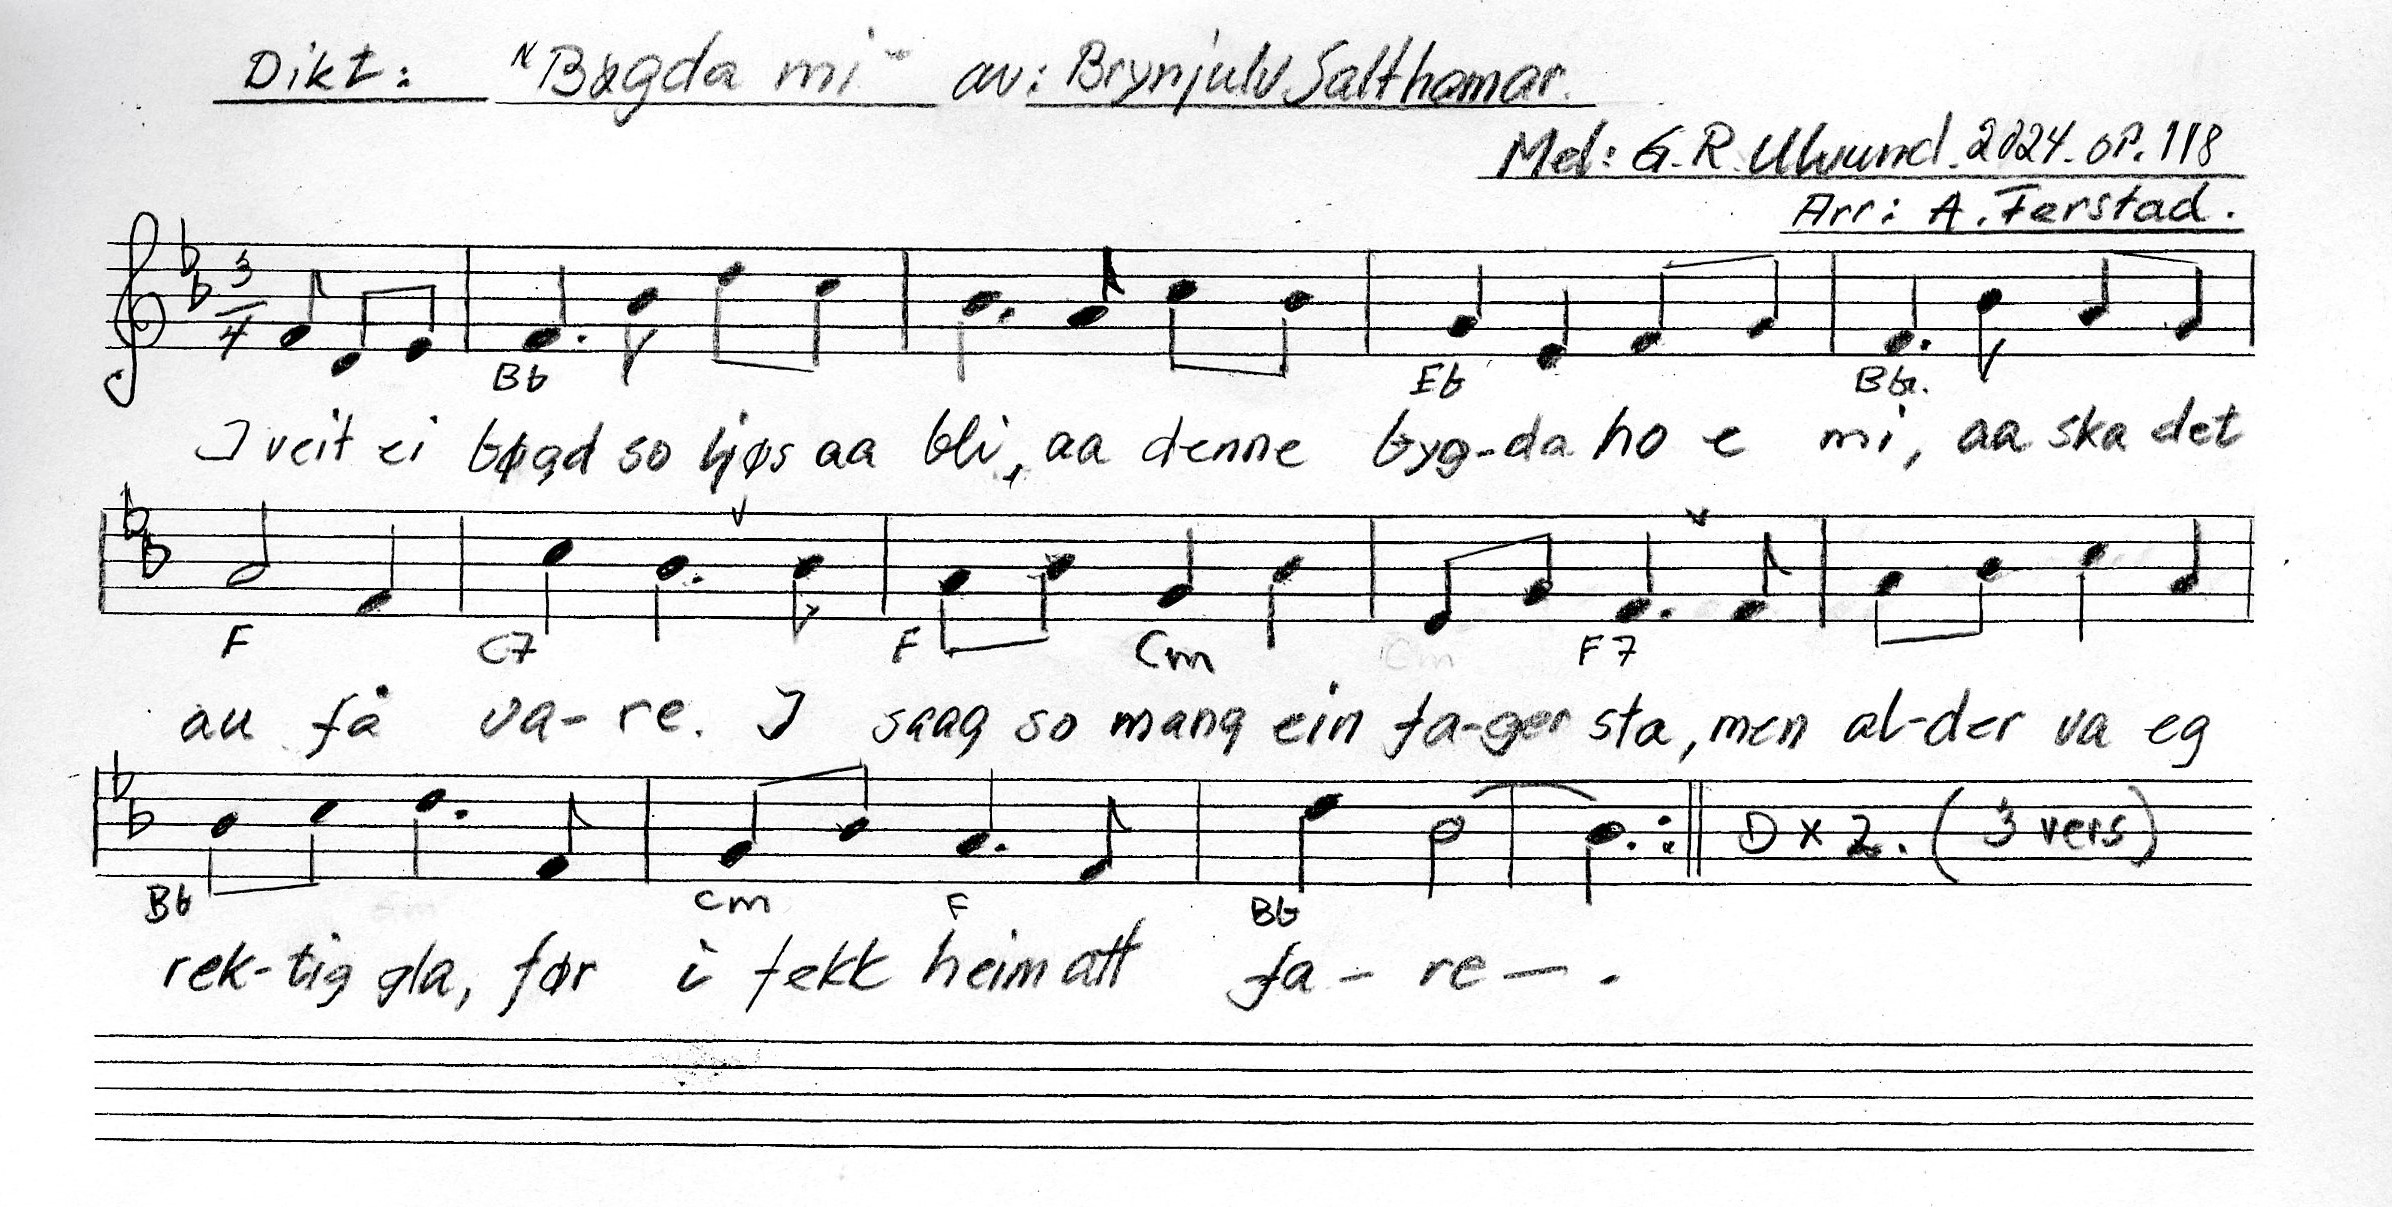 Dikt: "Bøgda mi" av: Brynjulv Salthamar.
Med: G.R. Ulvund. 2024. op. 118
Arr: A. Ferstad.
3/4
Bb Eb Bb.
I veit ei bøgd so ljøs aa bli, aa denne byg-da ho e mi, aa ska det
F C7 F Cm Cm F7
au få va-re. I saag so mang ein fa-ger sta, men al-der va eg
D x 2. (3 vers)
Bb Cm F Bb
rek-tig gla, før i fekk heim att fa-re-.